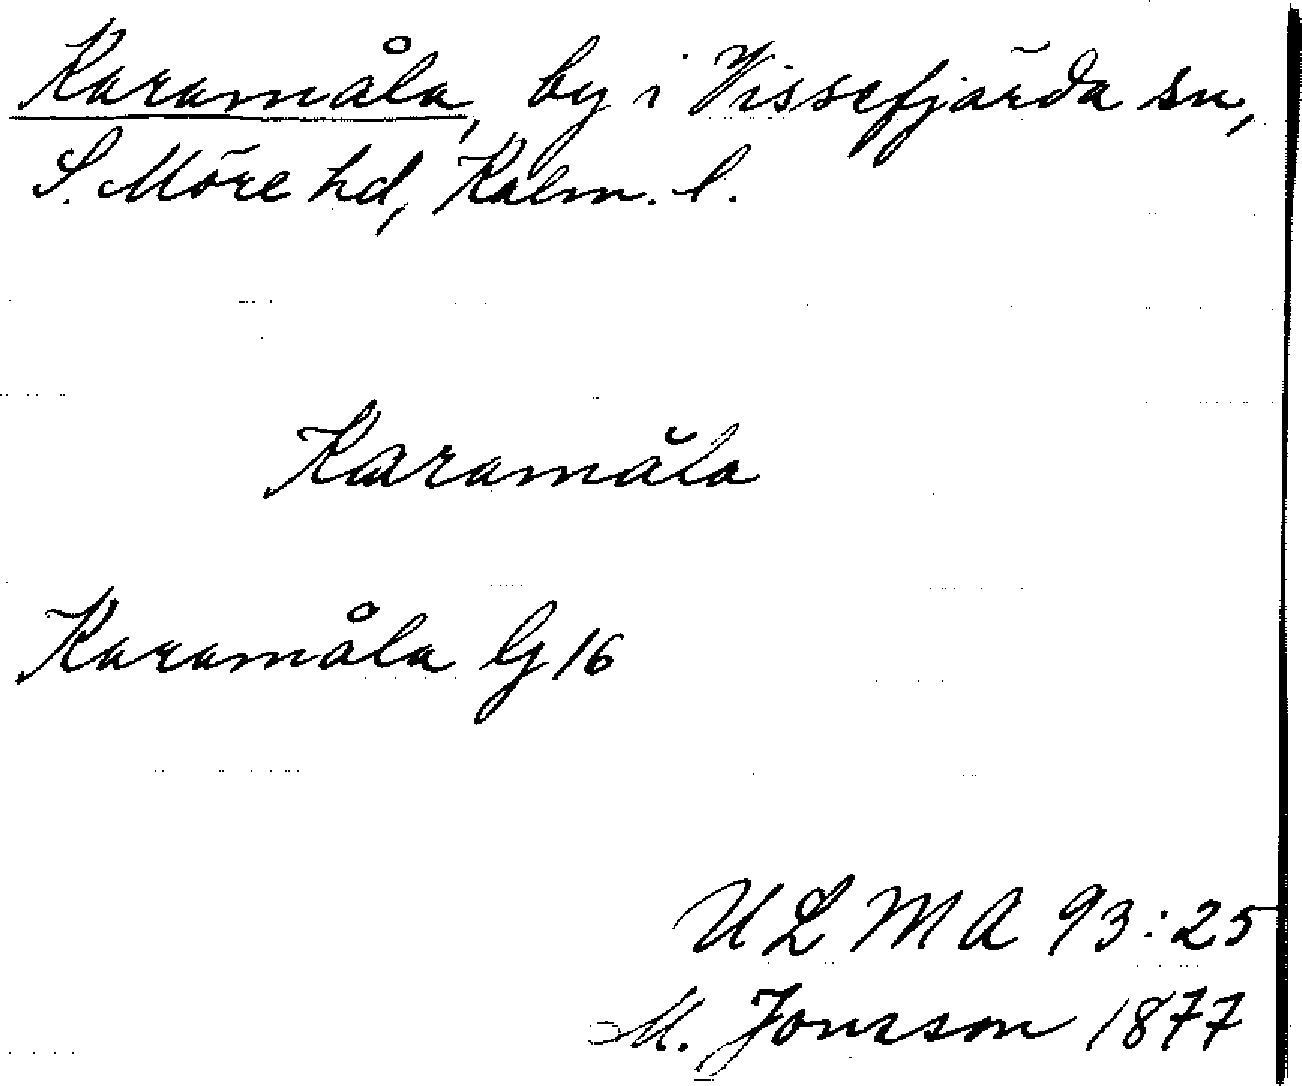 Karamåla, by i Vissefjärda sn,
S. Möre hd, Kalm. l.
Karamåla
Karamåla G 16
ULMA 93:25
M. Jonsson 1877